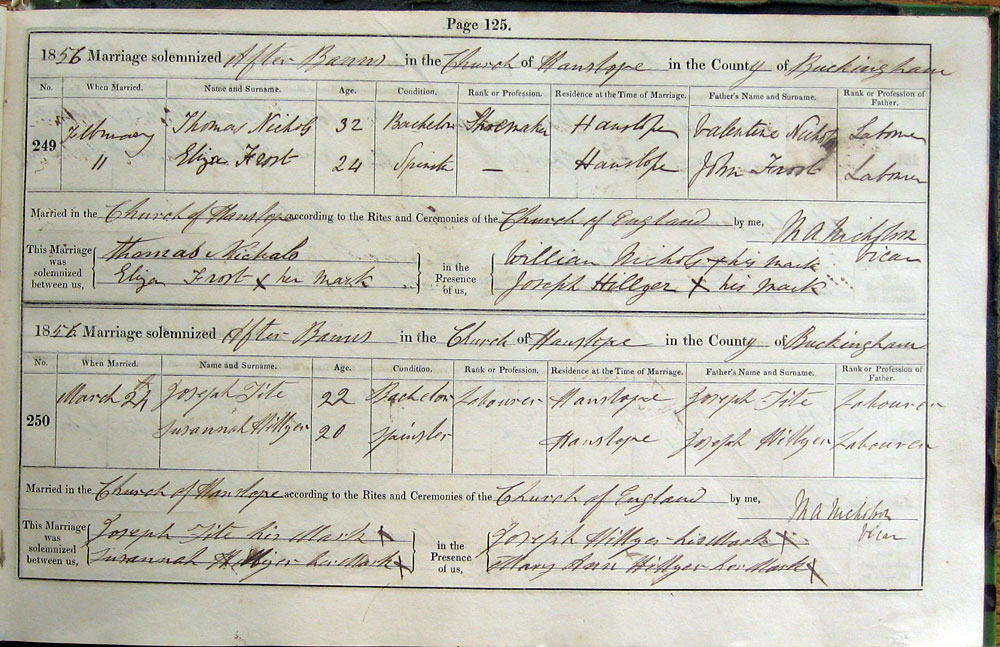 Page 125.
1856 Marriage solemnized After Banns in the Church of Hanslope in the County of Buckingham
No. When Married. Name and Surname. Age. Condition. Rank or Profession. Residence at the Time of Marriage. Father's Name and Surname. Rank or Profession of Father.
249 February 11 Thomas Nichols 32 Bachelor Shoemaker Hanslope Valentine Nichols Labourer
Eliza Frost 24 Spinster — Hanslope John Frost Labourer
Married in the Church of Hanslope according to the Rites and Ceremonies of the Church of England by me, M A Nicholson Vicar
This Marriage was solemnized between us, Thomas Nichals
Eliza Frost x her mark
in the Presence of us, William Nichols x his mark
Joseph Hillyer x his mark
1856 Marriage solemnized After Banns in the Church of Hanslope in the County of Buckingham
No. When Married. Name and Surname. Age. Condition. Rank or Profession. Residence at the Time of Marriage. Father's Name and Surname. Rank or Profession of Father.
250 March 24 Joseph Tite 22 Bachelor Labourer Hanslope Joseph Tite Labourer
Susannah Hillyer 20 Spinster Hanslope Joseph Hillyer Labourer
Married in the Church of Hanslope according to the Rites and Ceremonies of the Church of England by me, M A Nicholson Vicar
This Marriage was solemnized between us, Joseph Tite his Mark x
Susannah Hillyer her Mark x
in the Presence of us, Joseph Hillyer his Mark x
Mary Ann Hillyer her Mark x